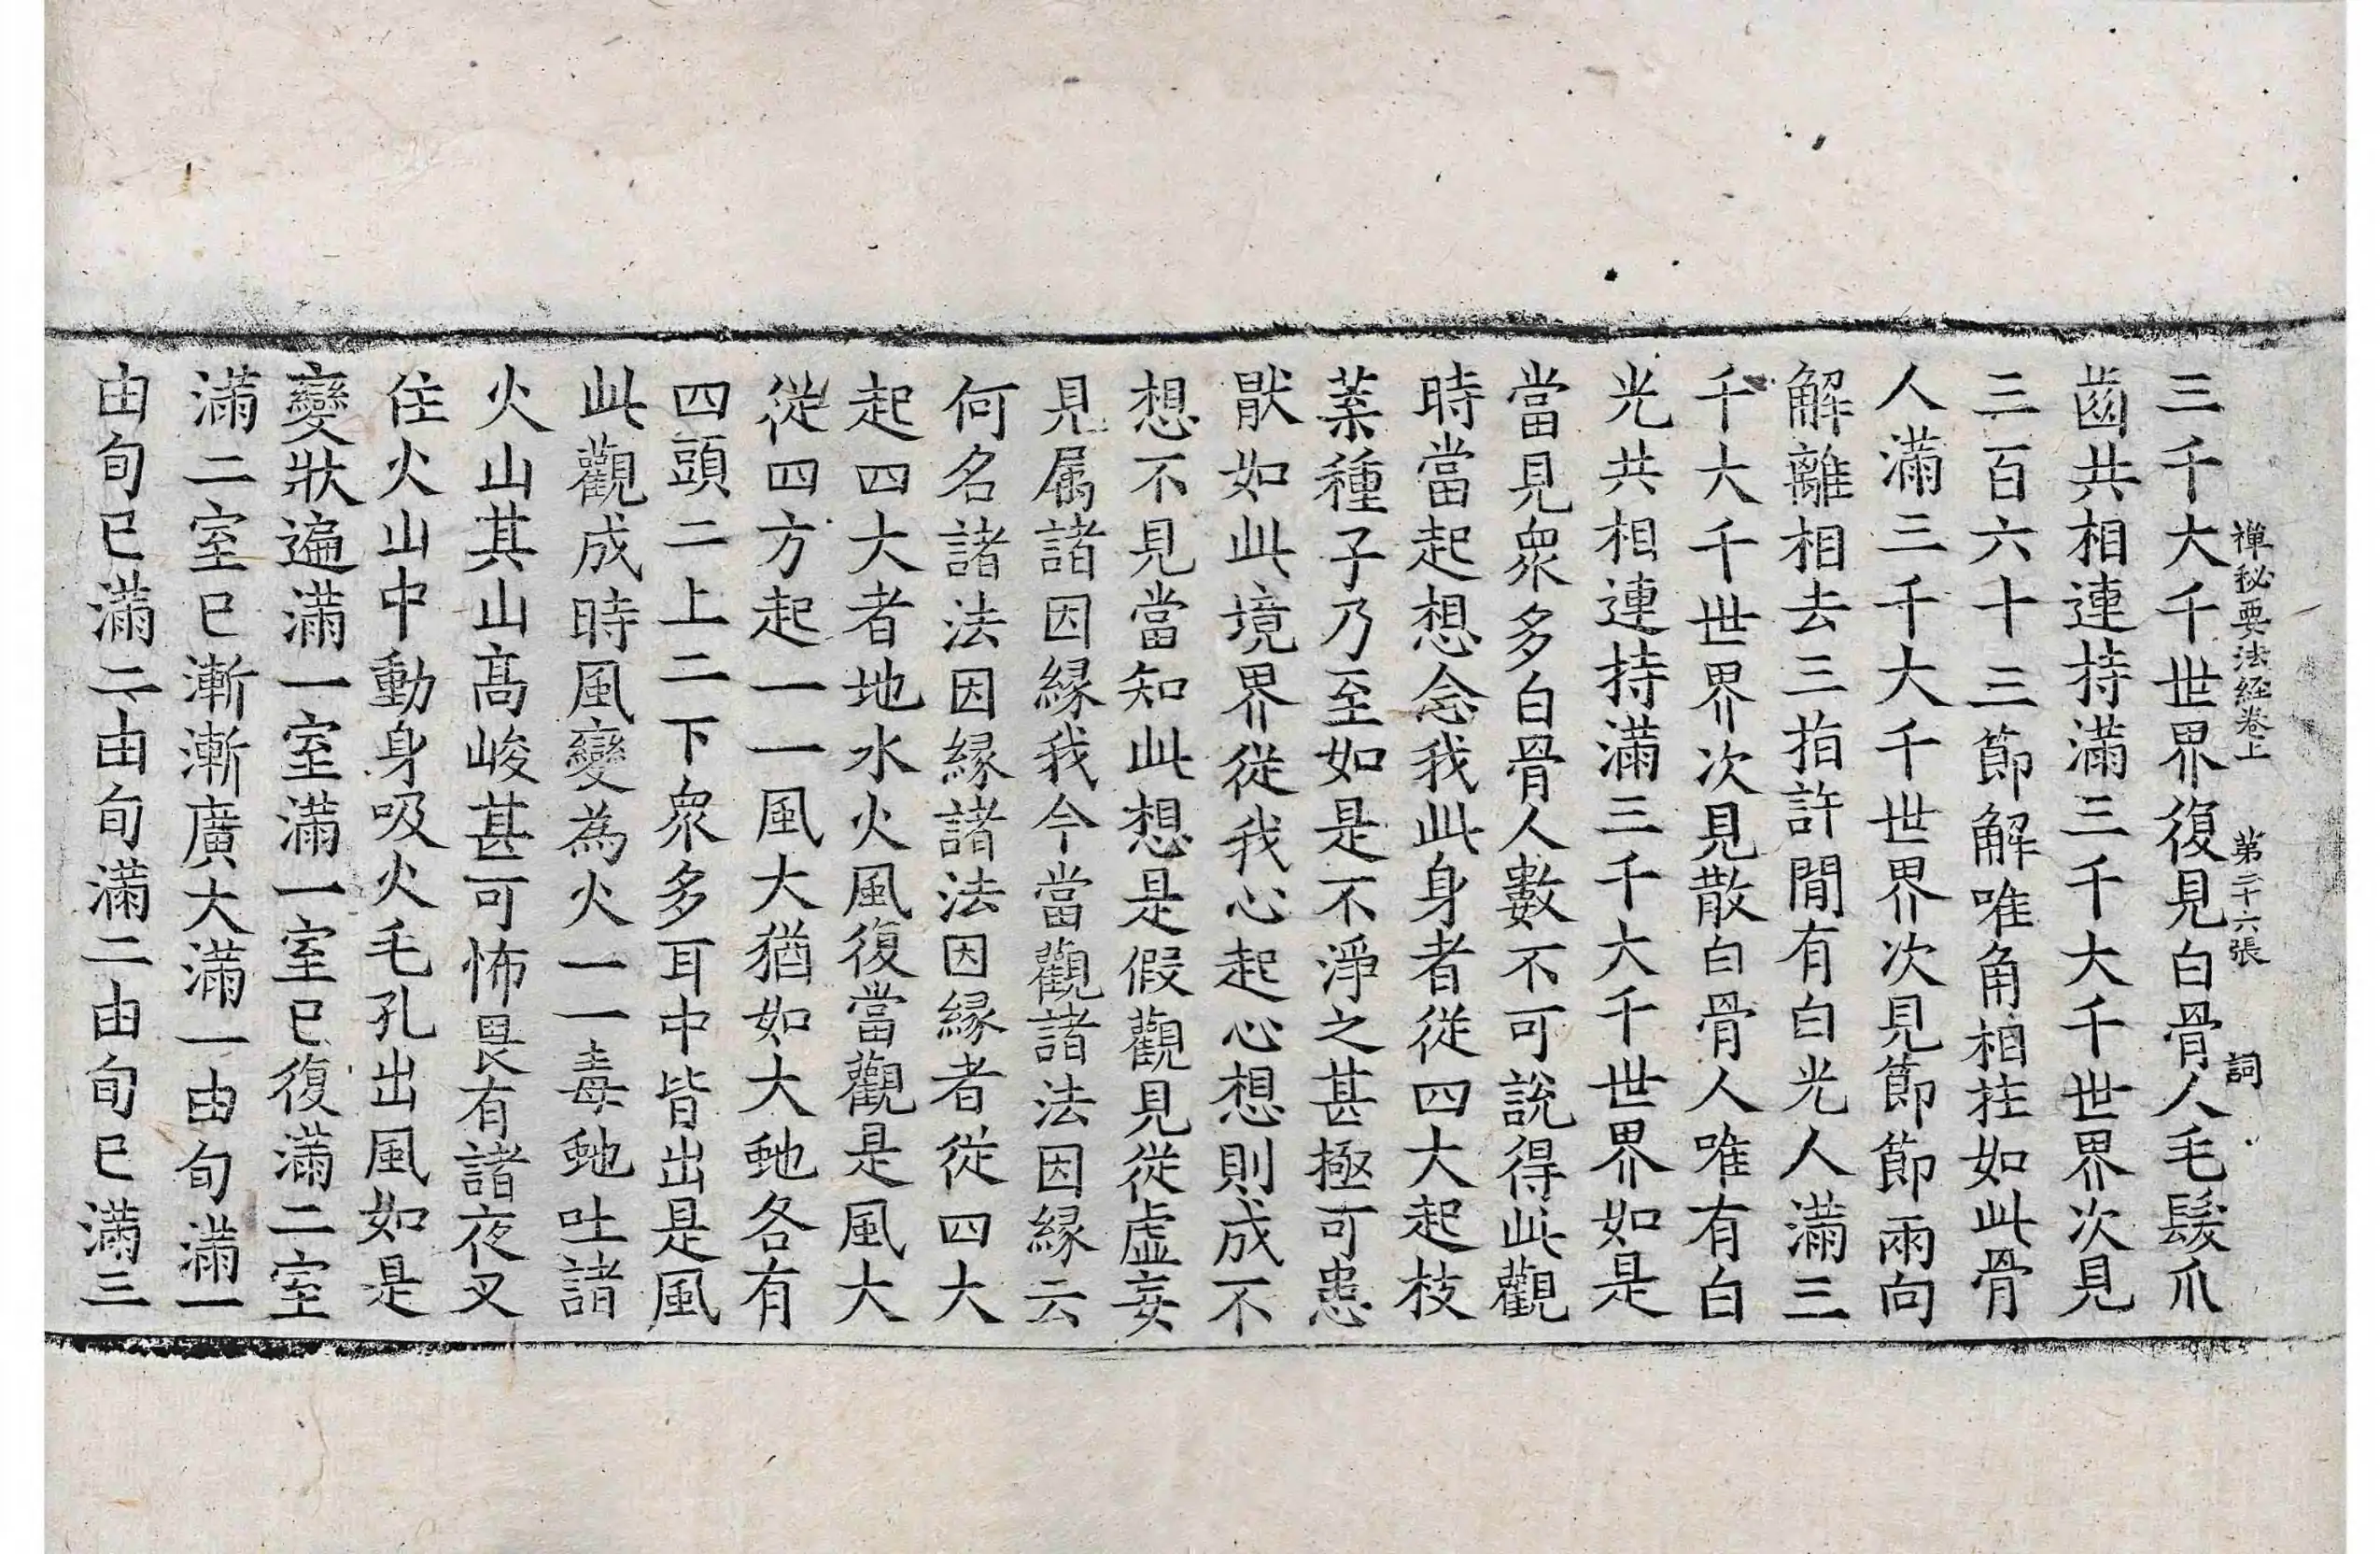 禪秘要法經卷上　第二十六張　詞
三千大千世界復見白骨人毛髮爪
齒共相連持滿三千大千世界次見
三百六十三節解唯角相拄如此骨
人滿三千大千世界次見節節兩向
解離相去三指許間有白光人滿三
千大千世界次見散白骨人唯有白
光共相連持滿三千大千世界如是
當見衆多白骨人數不可說得此觀
時當起想念我此身者從四大起枝
葉種子乃至如是不淨之甚極可患
猒如此境界從我心起心想則成不
想不見當知此想是假觀見從虛妄
見属諸因緣我今當觀諸法因緣云
何名諸法因緣諸法因緣者從四大
起四大者地水火風復當觀是風大
從四方起一一風大猶如大虵各有
四頭二上二下衆多耳中皆出是風
此觀成時風變為火一一毒虵吐諸
火山其山高峻甚可怖畏有諸夜叉
住火山中動身吸火毛孔出風如是
變狀遍滿一室滿一室已復滿二室
滿二室已漸漸廣大滿一由旬滿一
由旬已滿二由旬滿二由旬已滿三